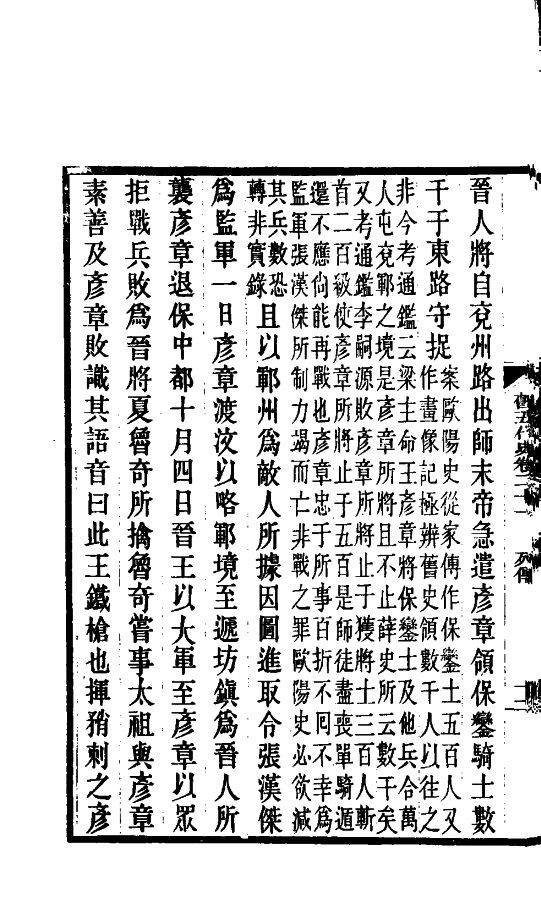 晉人將自兗州路出師末帝急遣彥章領保鑾騎士數
千于東路守捉
案歐陽史從家傳作保鑾士五百人又
作畫像記極辨舊史領數千人以往之
非今考通鑑云梁主命王彥章將保鑾士及他兵合萬
人屯兗鄆之境是彥章所將且不止薛史所云數千矣
又考通鑑李嗣源敗彥章所將止于獲將士三百人斬
首二百級使彥章所將止于五百是師徒盡喪單騎遁
還不應尙能再戰也彥章忠于所事百折不囘不幸爲
監軍張漢傑所制力竭而亡非戰之罪歐陽史必欲減
其兵數恐
轉非實錄
且以鄆州爲敵人所據因圖進取令張漢傑
爲監軍一日彥章渡汶以略鄆境至遞坊鎮爲晉人所
襲彥章退保中都十月四日晉王以大軍至彥章以眾
拒戰兵敗爲晉將夏魯奇所擒魯奇嘗事太祖與彥章
素善及彥章敗識其語音曰此王鐵槍也揮矟刺之彥
舊五代史卷二十一
列傳